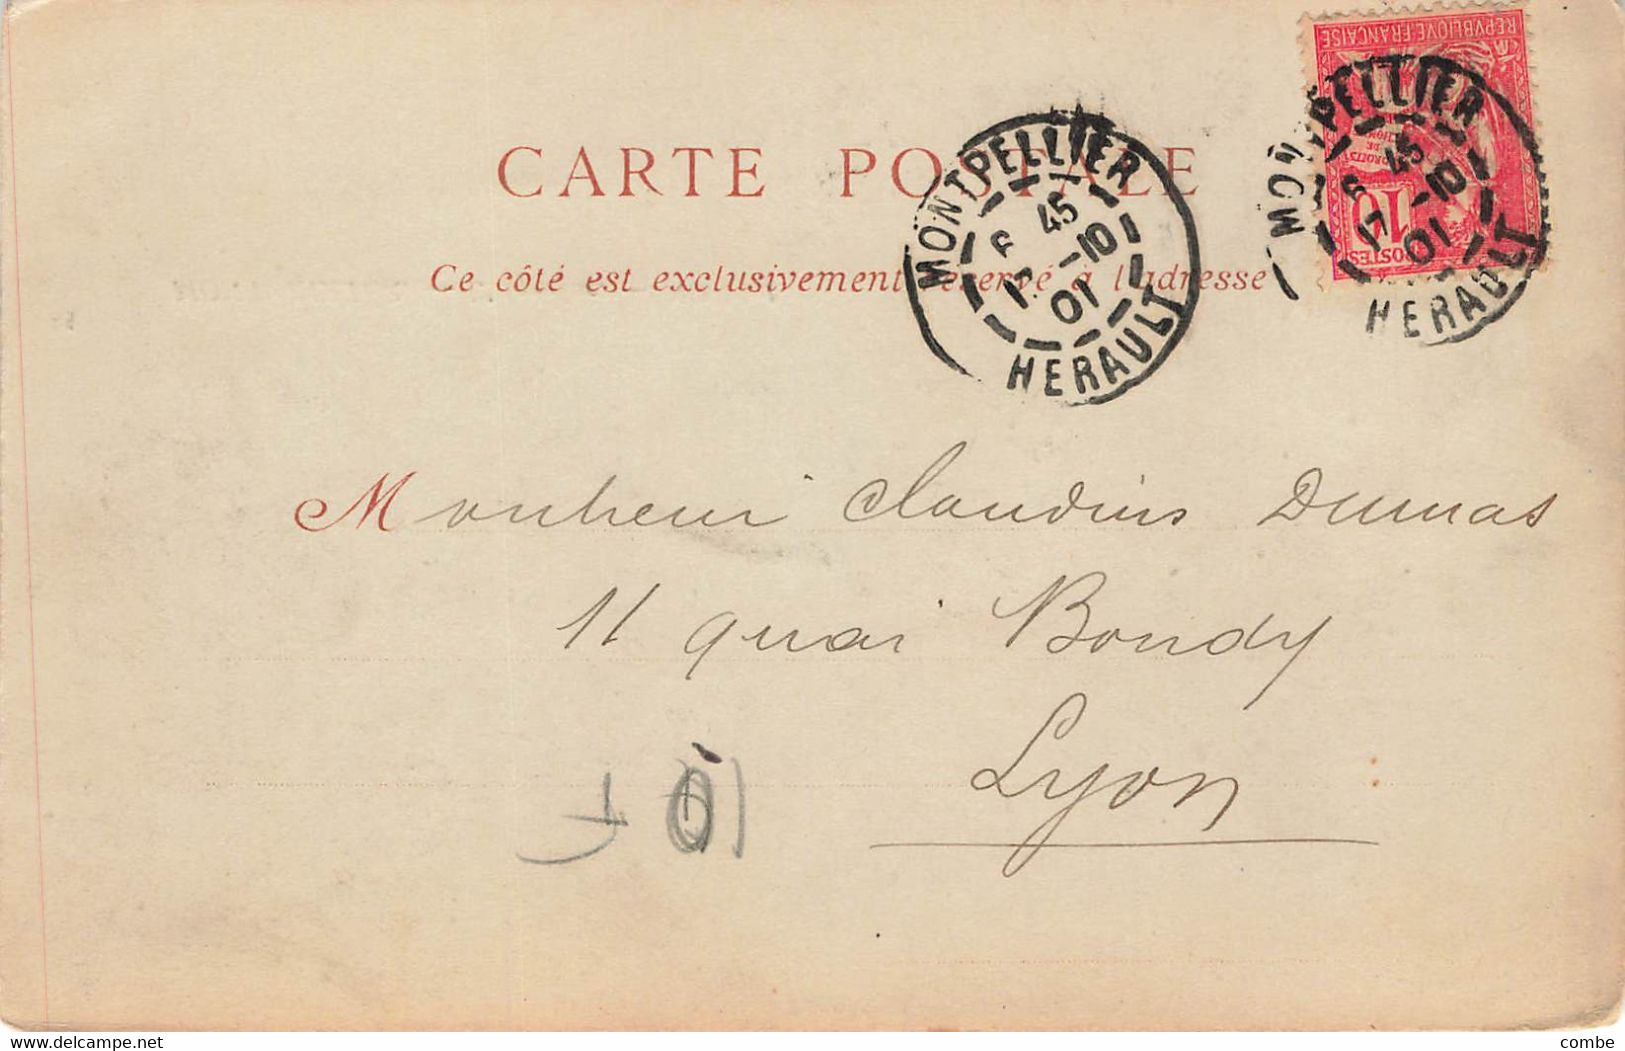 REPVBLIQVE FRANÇAISE
DROITS
DE
10
POSTES
CARTE POSTALE
MONTPELLIER
6 45
17 -10
01
HERAULT
MONTPELLIER
6 45
17 -10
01
HERAULT
Ce côté est exclusivement réservé à l'adresse
Monsieur Claudius Dumas
11 quai Bondy
Lyon
delcampe.net
combe